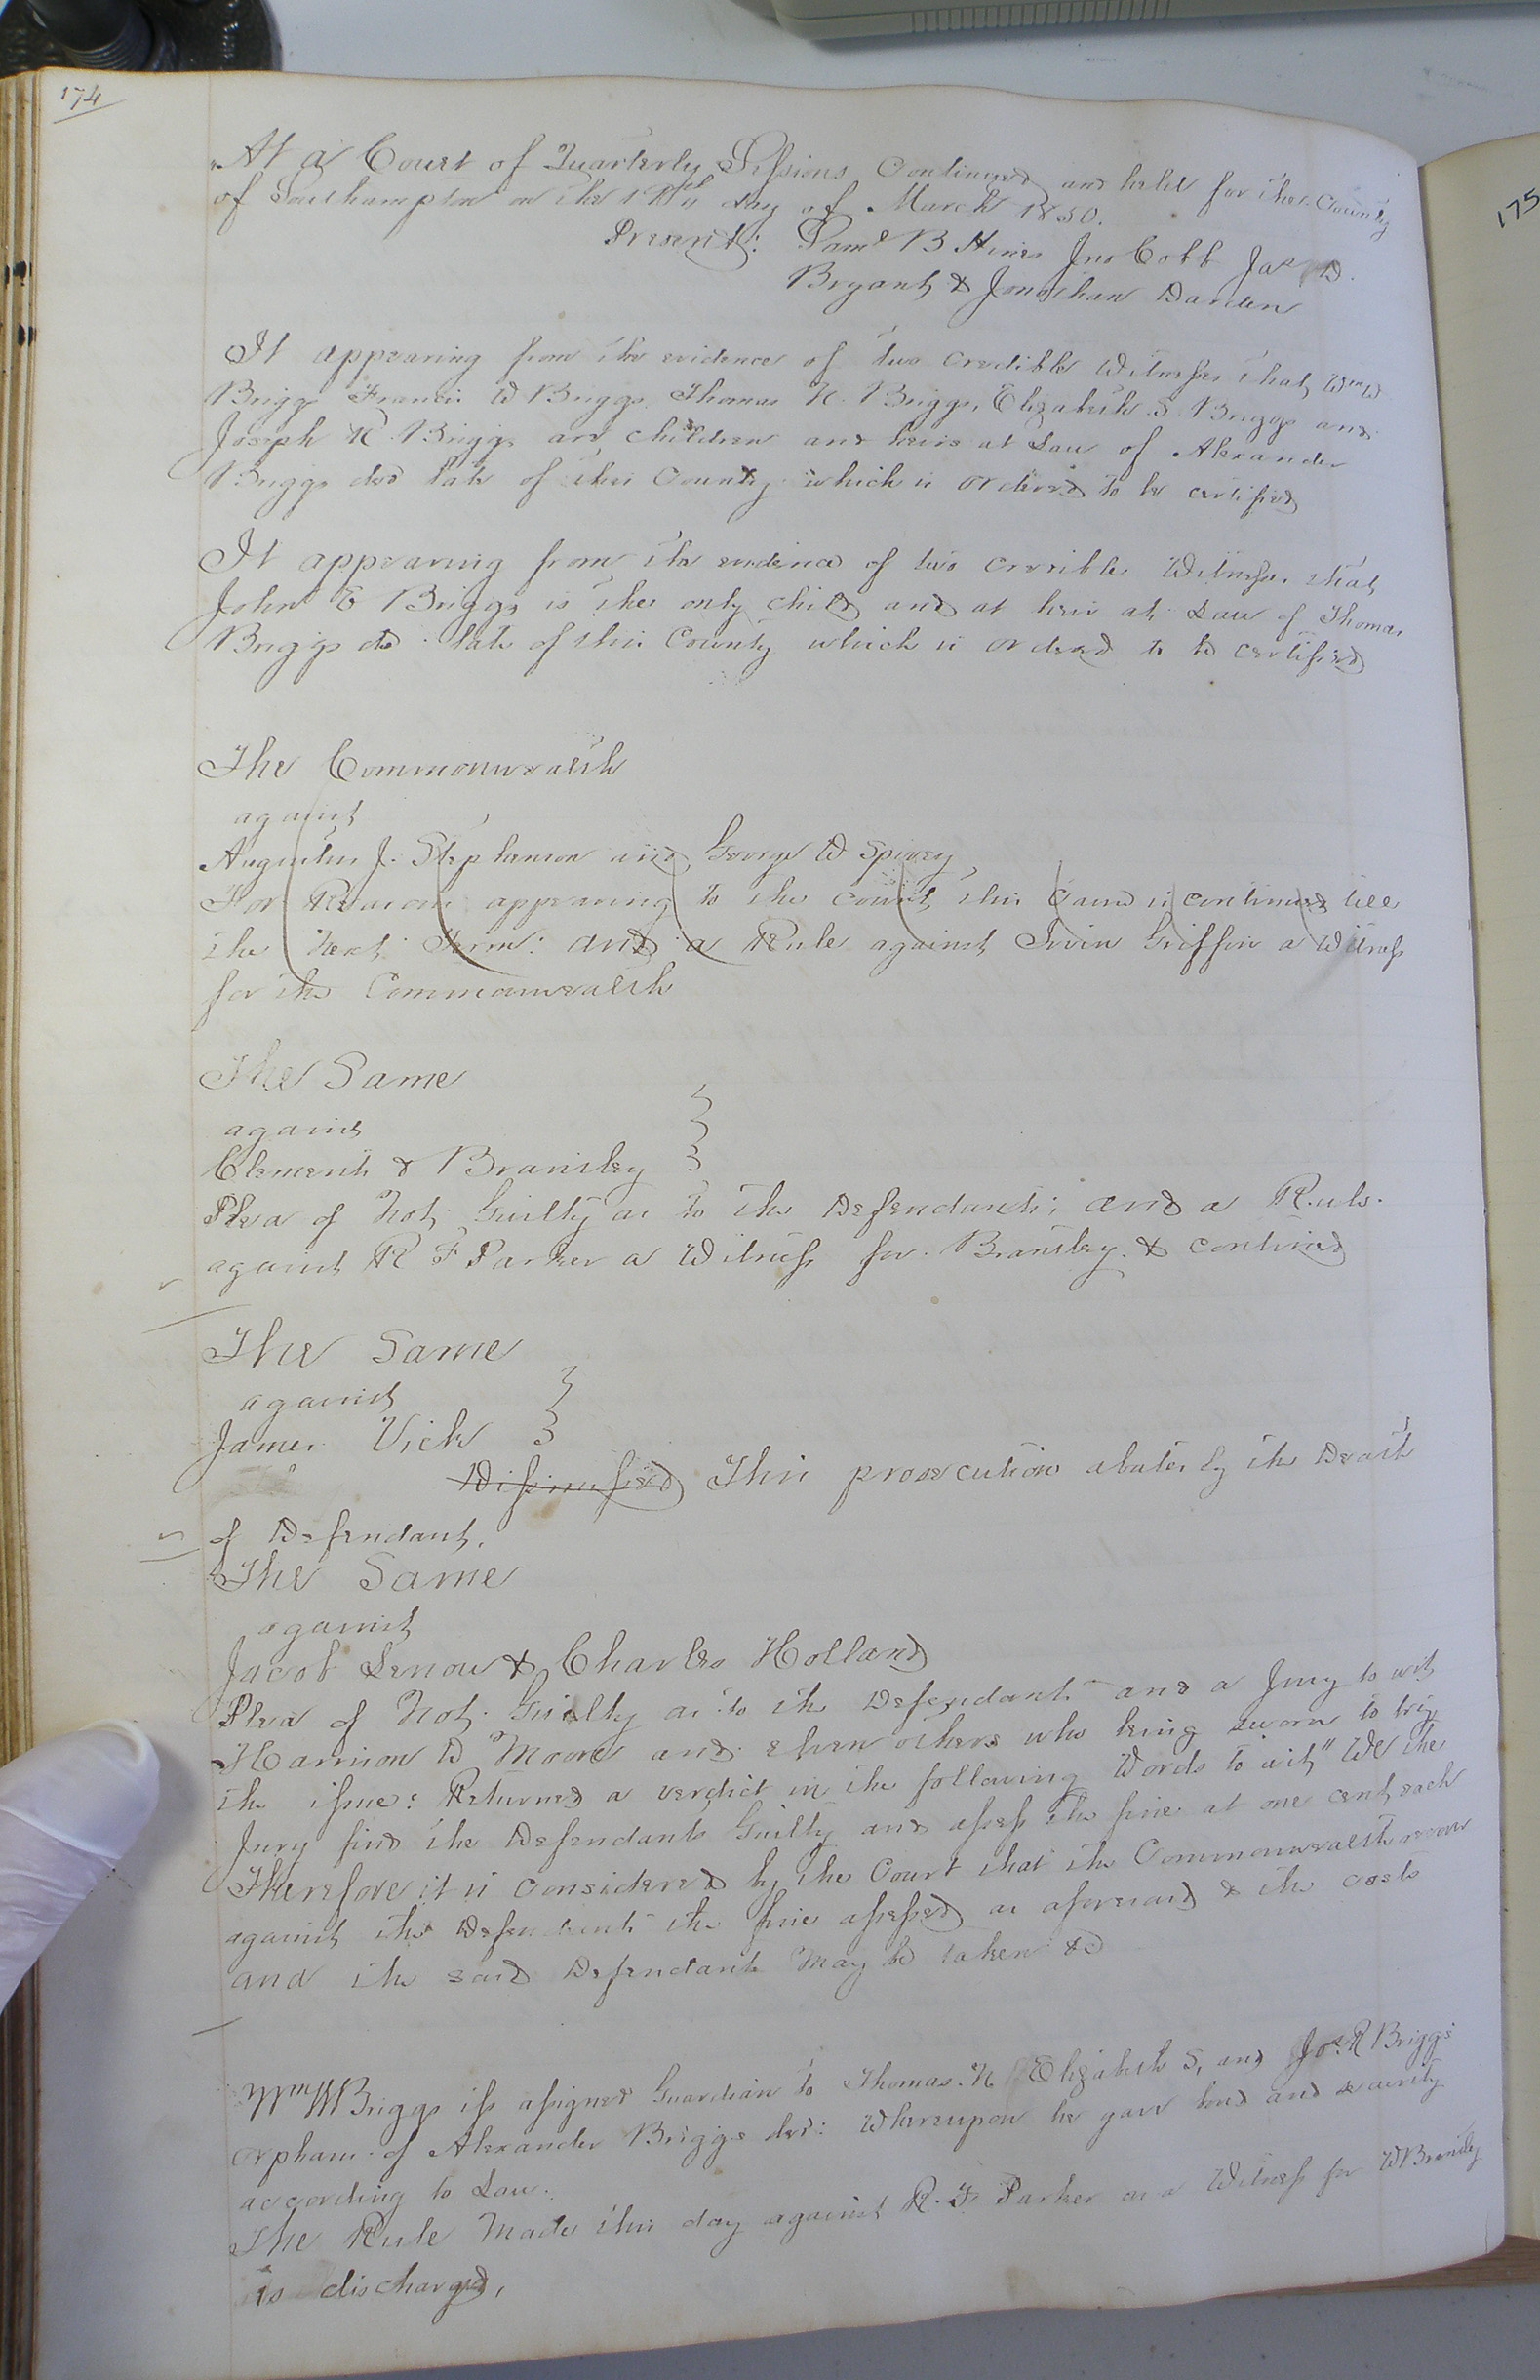 174
At a Court of Quarterly Sessions Continued and held for the County
of Southampton on the day of March 1850.
Present: Saml B Hines Jno Cobb Jas D.
Bryant & Jonathan Darden
It appearing from the evidence of two Credible Witnesses that Wm W
Briggs Francis W Briggs Thomas N. Briggs, Elizabeth S. Briggs and
Joseph R Briggs are children and heirs at Law of Alexander
Briggs decd late of this County which is ordered to be certified
It appearing from the evidence of two credible Witnesses that
John E Briggs is the only child and at heir at Law of Thomas
Briggs decd late of this County which is ordered to be certified
The Commonwealth
against
Augustus J. Stephenson and George W Spivey
For Reasons appearing to the court this Cause is continued till
the Next Term: and a Rule against Irvin Griffin a Witness
for the Commonwealth
The Same
against
Clements & Bransley
Plea of Not Guilty as to the Defendants; and a Rule
against R F Parker a Witness for Bransley & continued
The Same
against
James Vick
Dismissed This prosecution abates by the Death
of Defendant.
The Same
against
Jacob Lenow & Charles Holland
Plea of Not Guilty as to the Defendants and a Jury to wit
Harrison D Moore and eleven others who being sworn to try
the issue: Returned a verdict in the following Words to wit "We the
Jury find the Defendants Guilty and assess the fine at one cent each
Therefore it is considered by the Court that the Commonwealth recover
against the Defendants the fine assessed as aforesaid & the costs
and the said Defendants may be taken &c
Wm W Briggs is assigned Guardian to Thomas N Elizabeth S, and Jos R Briggs
orphans of Alexander Briggs decd: Whereupon he gave bond and security
according to Law.
The Rule Made this day against R. F. Parker as a Witness for W Bransley
is discharged,
175